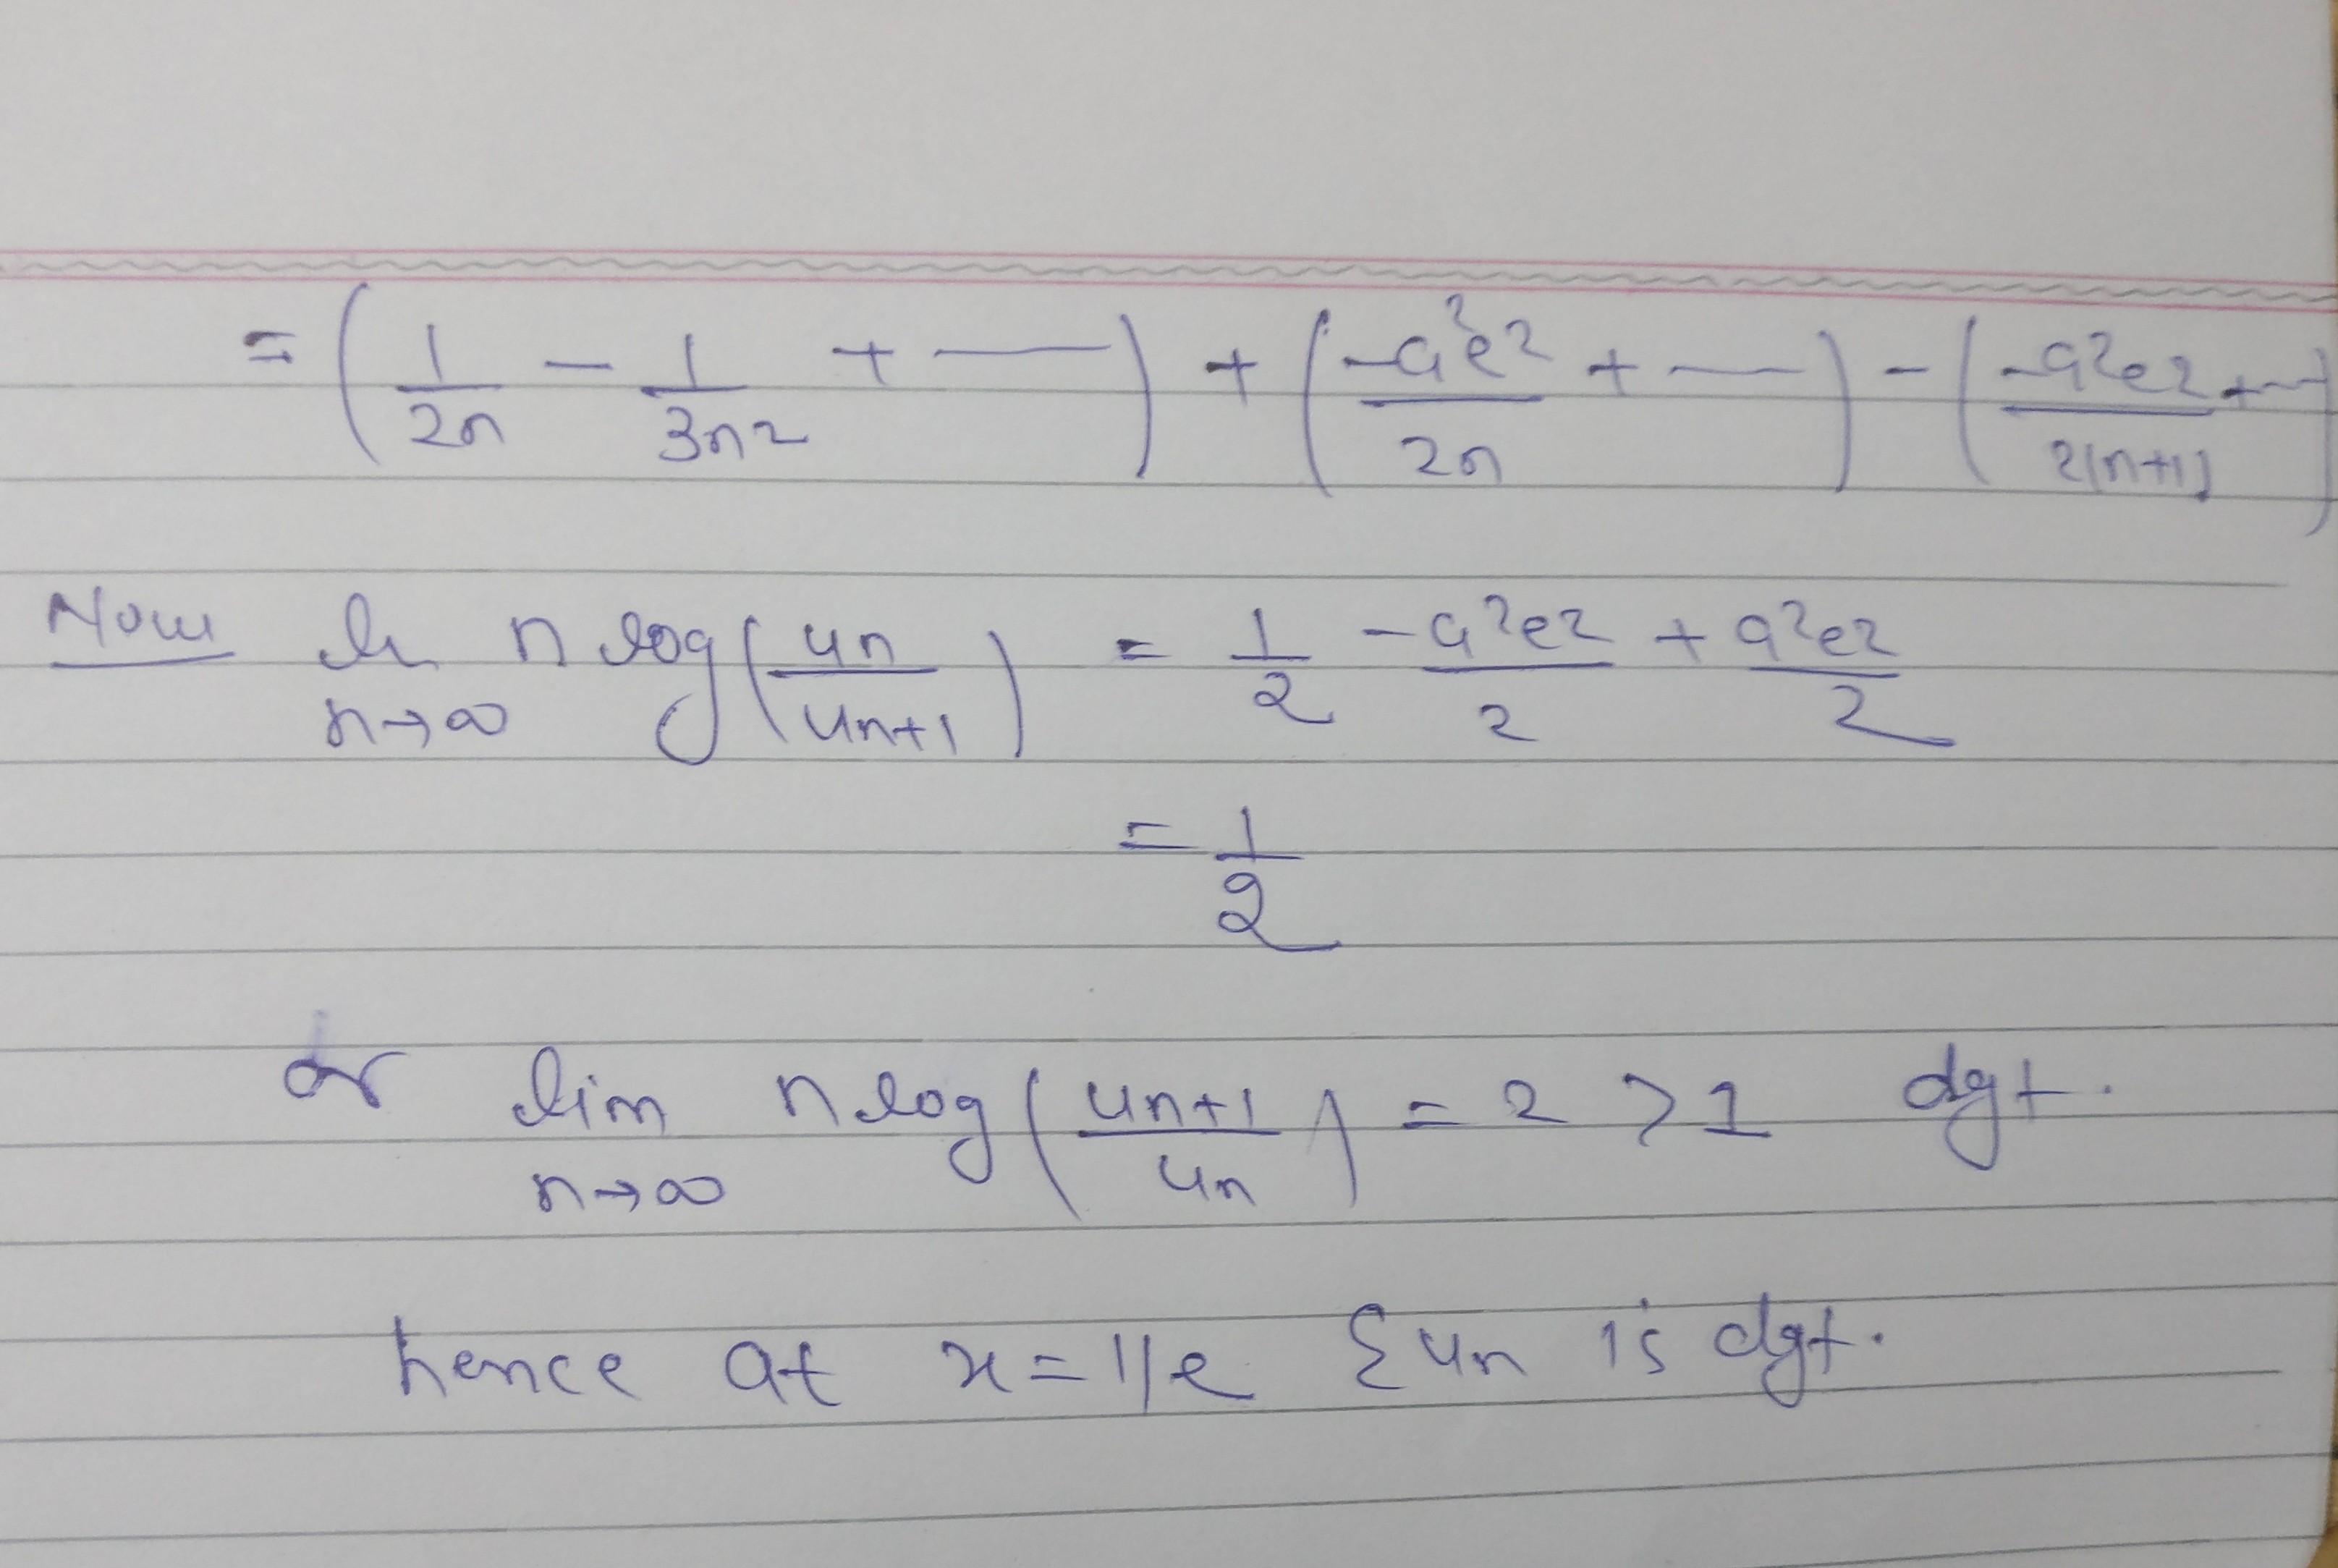 = (1/2n - 1/3n² + —) + (-a²e²/2n + —) - (-a²e²/2(n+1) + —)
Now lim n→∞ n log(un/un+1) = 1/2 - a²e²/2 + a²e²/2
= 1/2
or lim n→∞ n log(un+1/un) = 2 > 1 dgt.
hence at x = 1/e Σun is dgt.